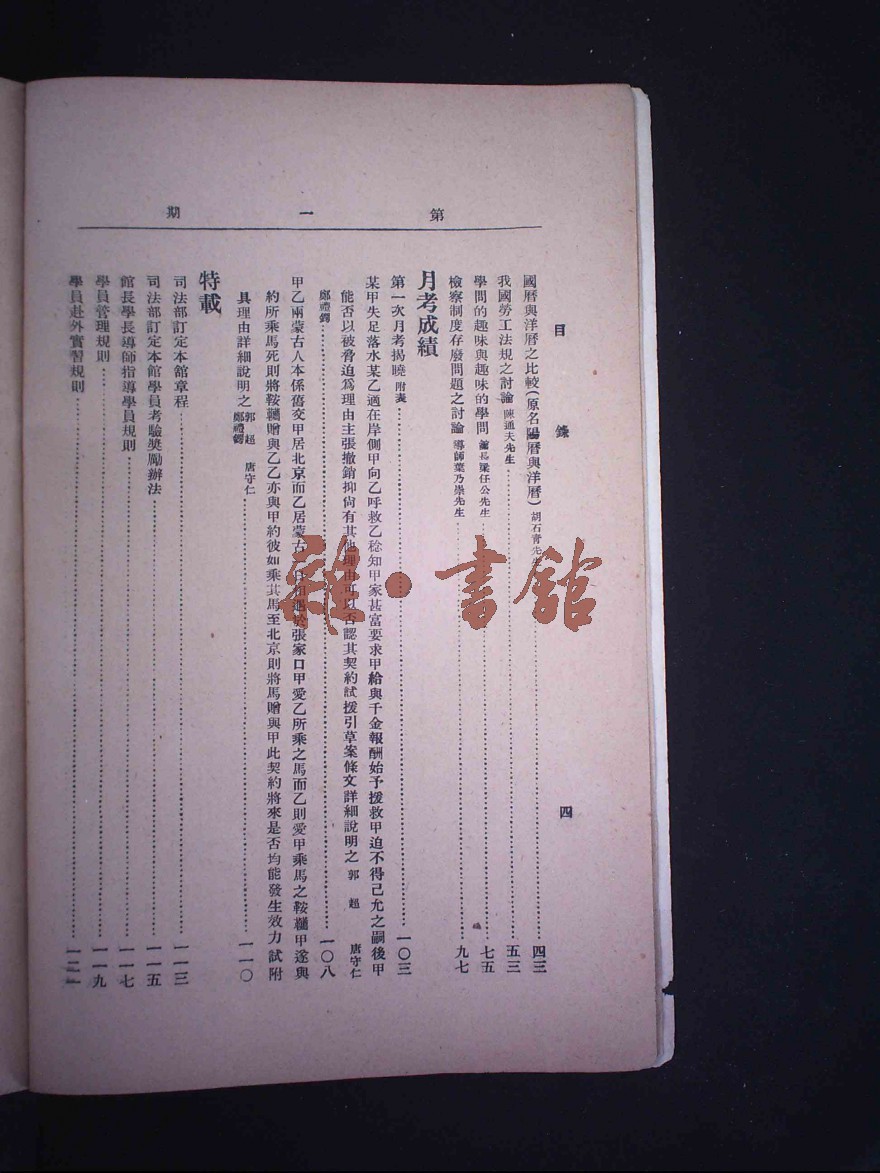 第一期
目錄 四
國曆與洋曆之比較(原名陽曆與洋曆) 胡石青先生 四三
我國勞工法規之討論 陳通夫先生 五三
學問的趣味與趣味的學問 館長梁任公先生 七五
檢察制度存廢問題之討論 導師葉乃崇先生 九七
月考成績
第一次月考揭曉 附表 一〇三
某甲失足落水某乙適在岸側甲向乙呼救乙稔知甲家甚富要求甲給與千金報酬始予援救甲迫不得已允之嗣後甲
能否以被脅迫爲理由主張撤銷抑尙有其他理由可以否認其契約試援引草案條文詳細說明之 郭超 唐守仁
鄭禮鍔 一〇八
甲乙兩蒙古人本係舊交甲居北京而乙居蒙古 日相遇於張家口甲愛乙所乘之馬而乙則愛甲乘馬之鞍韉甲遂與
約所乘馬死則將鞍韉贈與乙乙亦與甲約彼如乘其馬至北京則將馬贈與甲此契約將來是否均能發生效力試附
具理由詳細說明之 郭超 唐守仁 鄭禮鍔 一一〇
特載
司法部訂定本館章程 一一三
司法部訂定本館學員考驗獎勵辦法 一一五
館長學長導師指導學員規則 一一七
學員管理規則 一一九
學員赴外實習規則 一二一
雜·書館